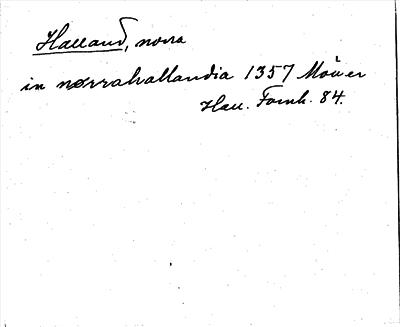 Halland, norra
in nørrahallandia 1357 Möller
Hall. Fornh. 84.